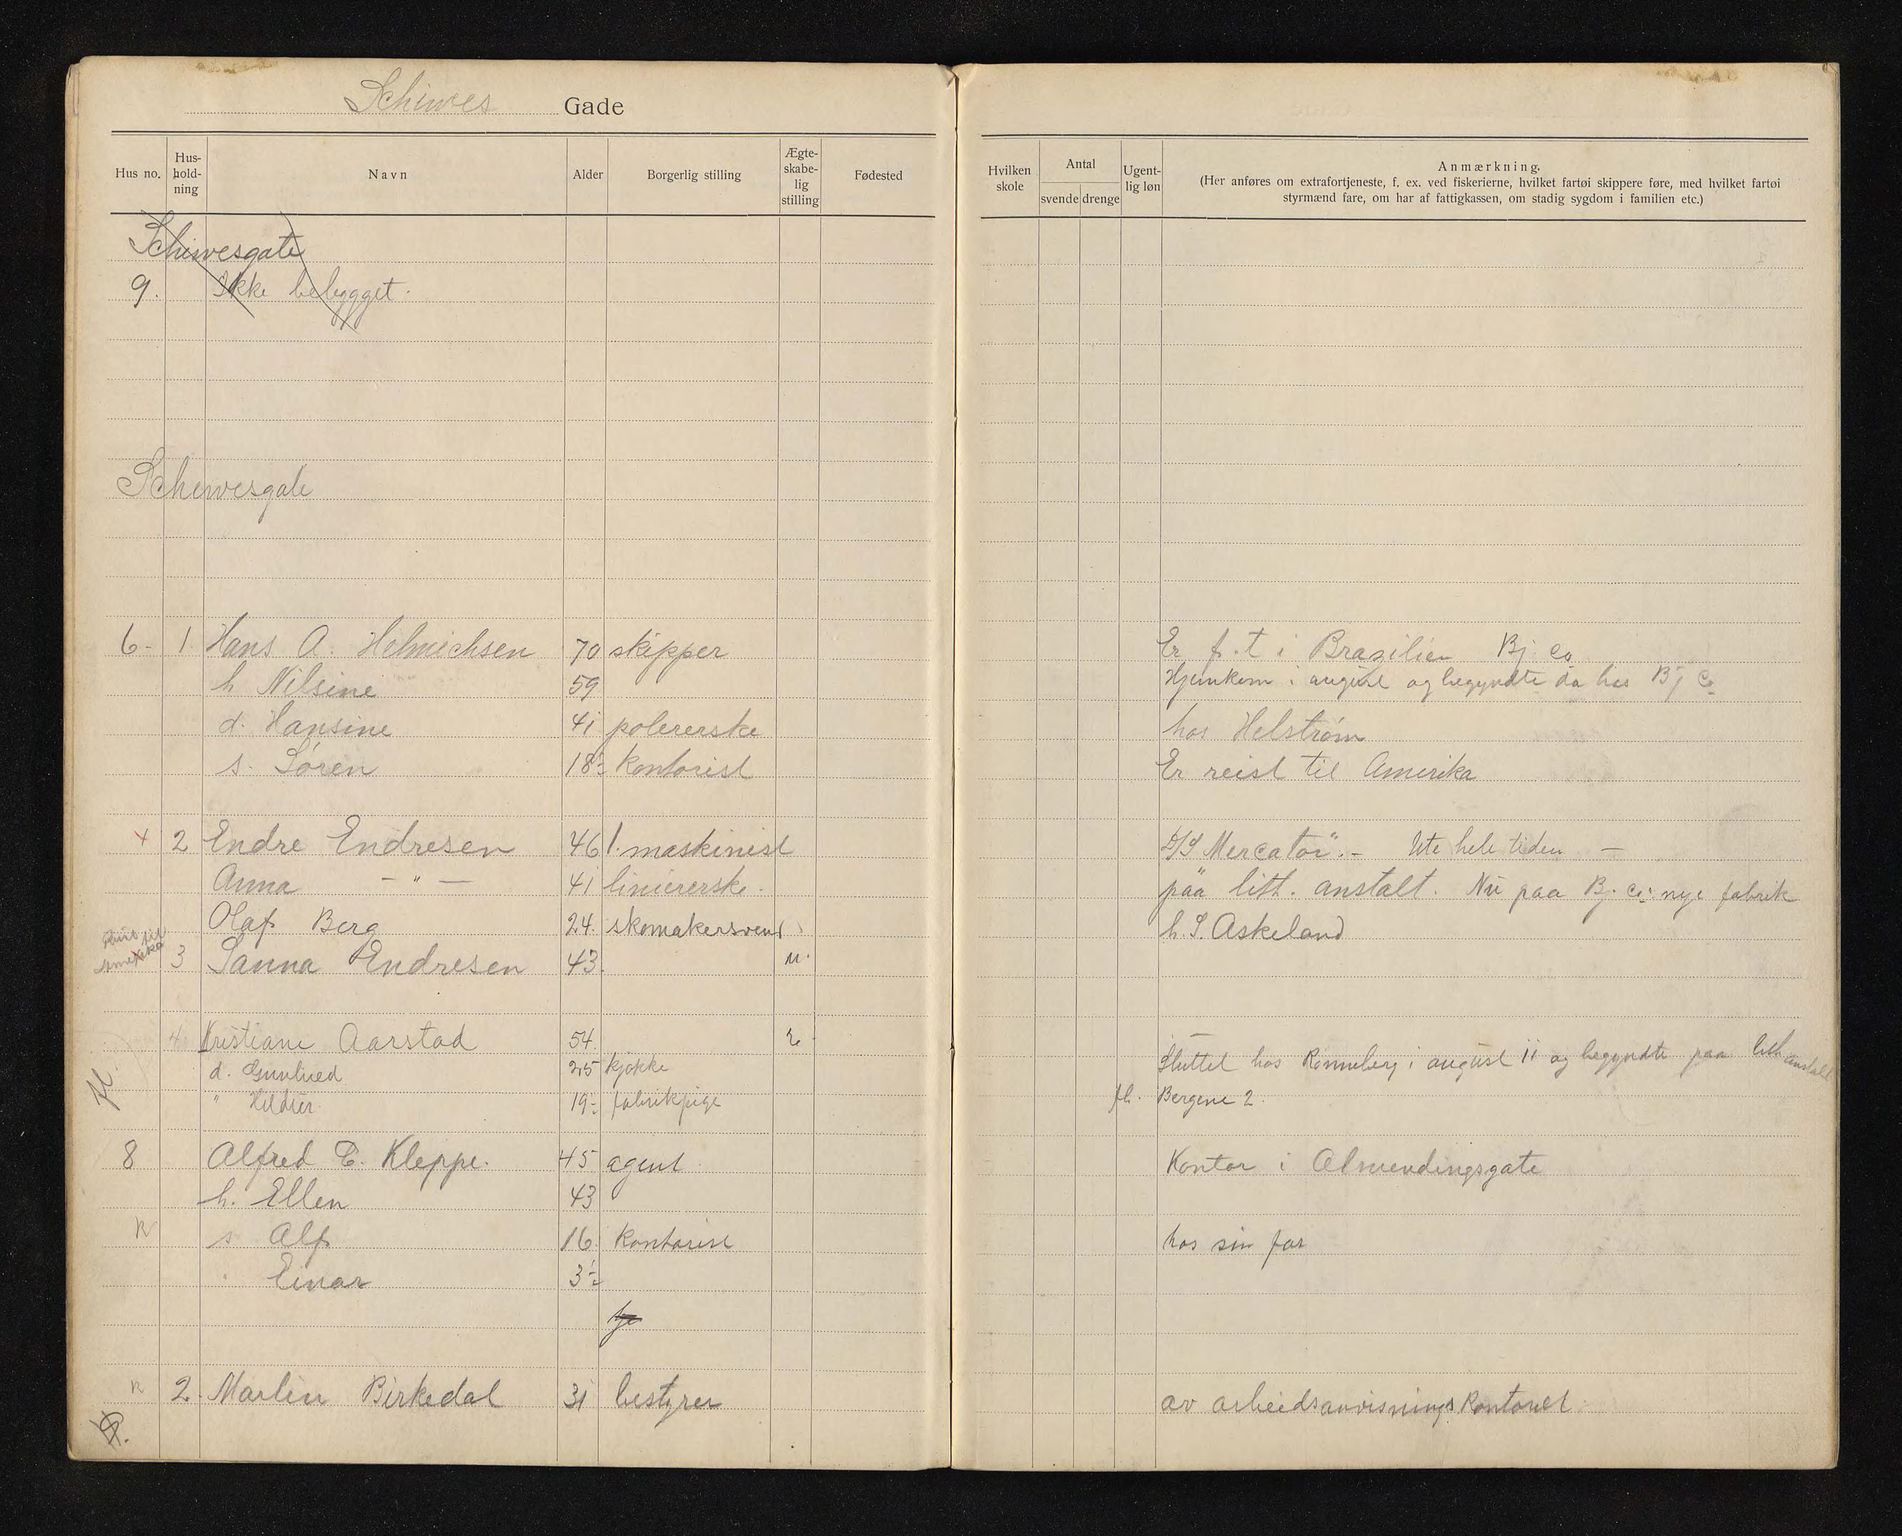 Schiwes Gade
Hus no. Hus-hold-ning Navn Alder Borgerlig stilling Ægte-skabe-lig stilling Fødested Hvilken skole Antal svende drenge Ugent-lig løn Anmærkning.
(Her anføres om extrafortjeneste, f. ex. ved fiskerierne, hvilket fartøi skippere føre, med hvilket fartøi
styrmænd fare, om har af fattigkassen, om stadig sygdom i familien etc.)
Schiwesgate
9. Ikke bebygget.
Schiwesgate
6- 1 Hans A. Helmichsen 70 skipper Er f.t i Brazilien Bj. Co
h Nilsine 59 Hjemkom i august og begyndte da hos Bj Co
d. Hansine 41 polererske hos Helstrøm
s. Søren 18½ kontorist Er reist til Amerika
x 2 Endre Endresen 46 1. maskinist D/S Mercator". - Ute hele tiden -
Anna - " - 41 liniererske. paa lith. anstalt. Nu paa Bj. Co. nye fabrik
Olaf Berg 24. skomakersvend h. S. Askeland
Amerika 3 Sanna Endresen 43. u.
4 Kristiane Aarstad 54. e
d. Gunhild 25 kjøkke Sluttet hos Ronneberg i august 11 og begyndte paa lith anstalt
fl. " 19½ fabrikpige fl. Bergene 2.
8 Alfred E. Kleppe. 45 agent Kontor i Almendingsgate
h. Ellen 43
R s Alf 16 kontorist hos sin far
" Einar 3½
R 2. Martin Birkedal 31 bestyrer av arbeidsanvisningskontoret